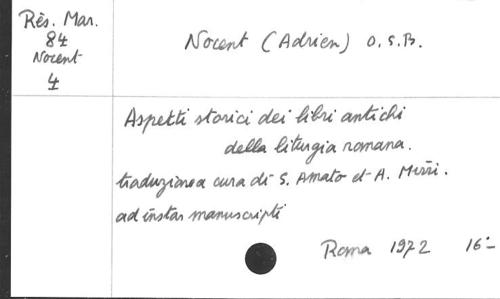 Rès. Mar.
84
Nocent
4
Nocent (Adrien) O.S.B.
Aspetti storici dei libri antichi
della liturgia romana.
traduzione a cura di S. Amato et A. Mirri.
ad instar manuscripti
Roma 1972 16°